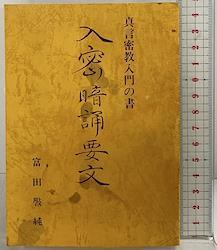 真言密教入門の書
入密暗誦要文
富田斅純